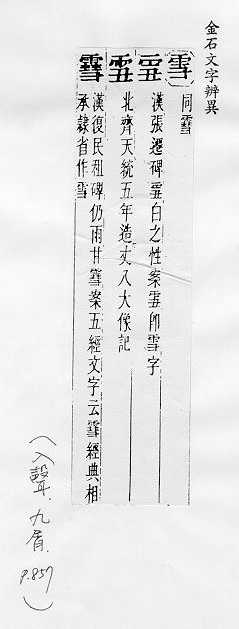 金石文字辨異
雪 同䨮
漢張遷碑 白之性案 即雪字
北齊天統五年造丈八大像記
䨮 漢復民租碑仍雨甘䨮案五經文字云䨮經典相
承隸省作雪
(入聲.九屑. P.857)